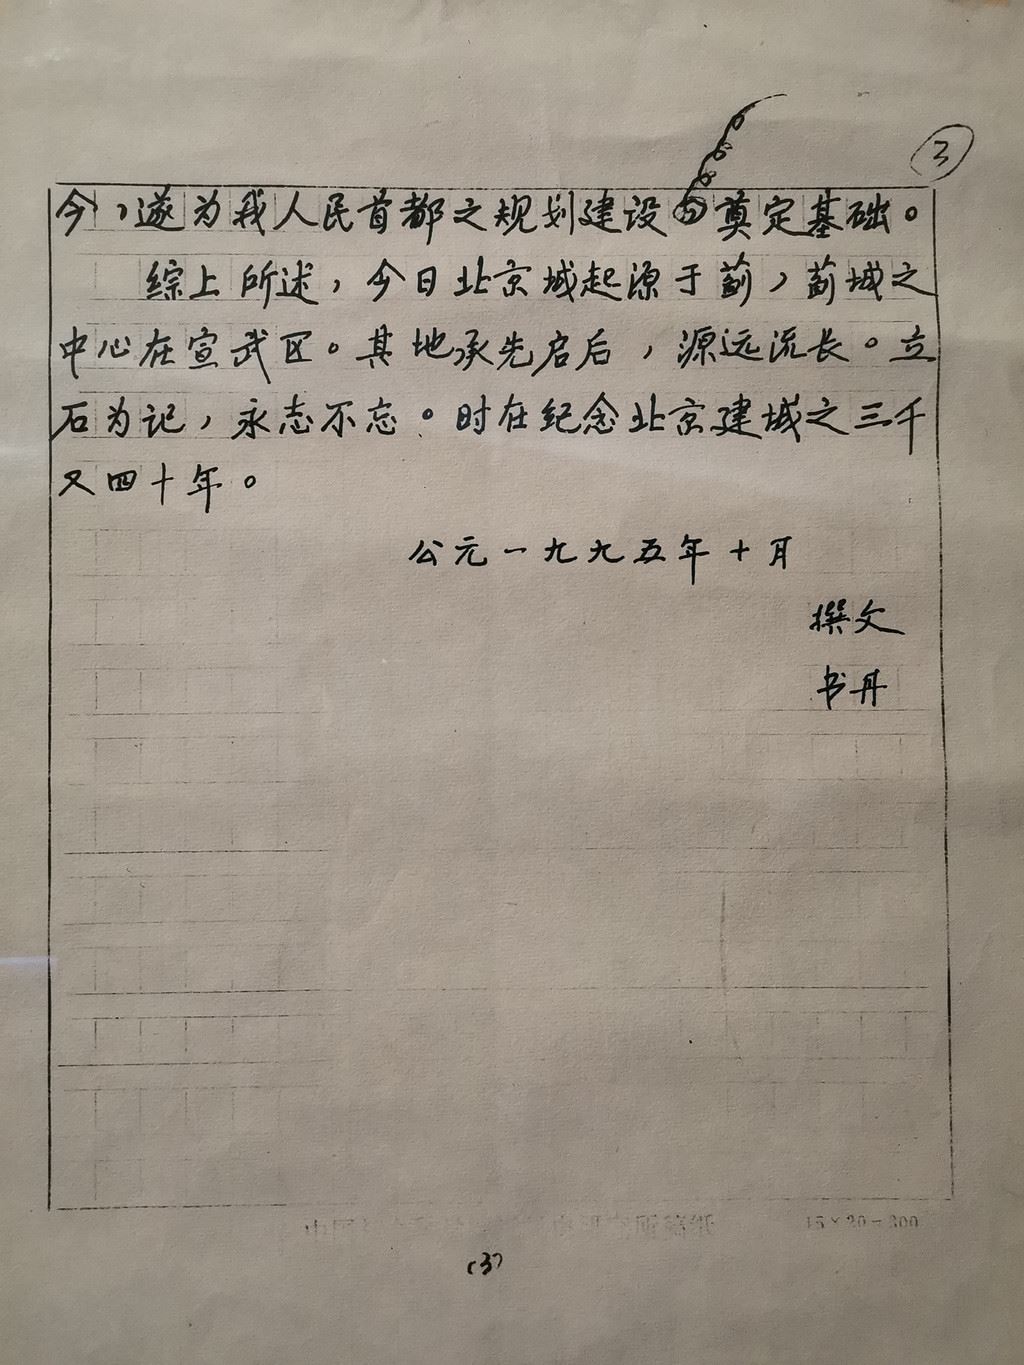 ③
今，遂为我人民首都之规划建设奠定基础。
综上所述，今日北京城起源于蓟，蓟城之
中心在宣武区。其地承先启后，源远流长。立
石为记，永志不忘。时在纪念北京建城之三千
又四十年。
公元一九九五年十月
撰文
书丹
15×20=300
(3)